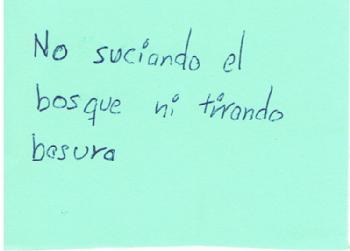 No suciando el
bosque ni tirando
basura